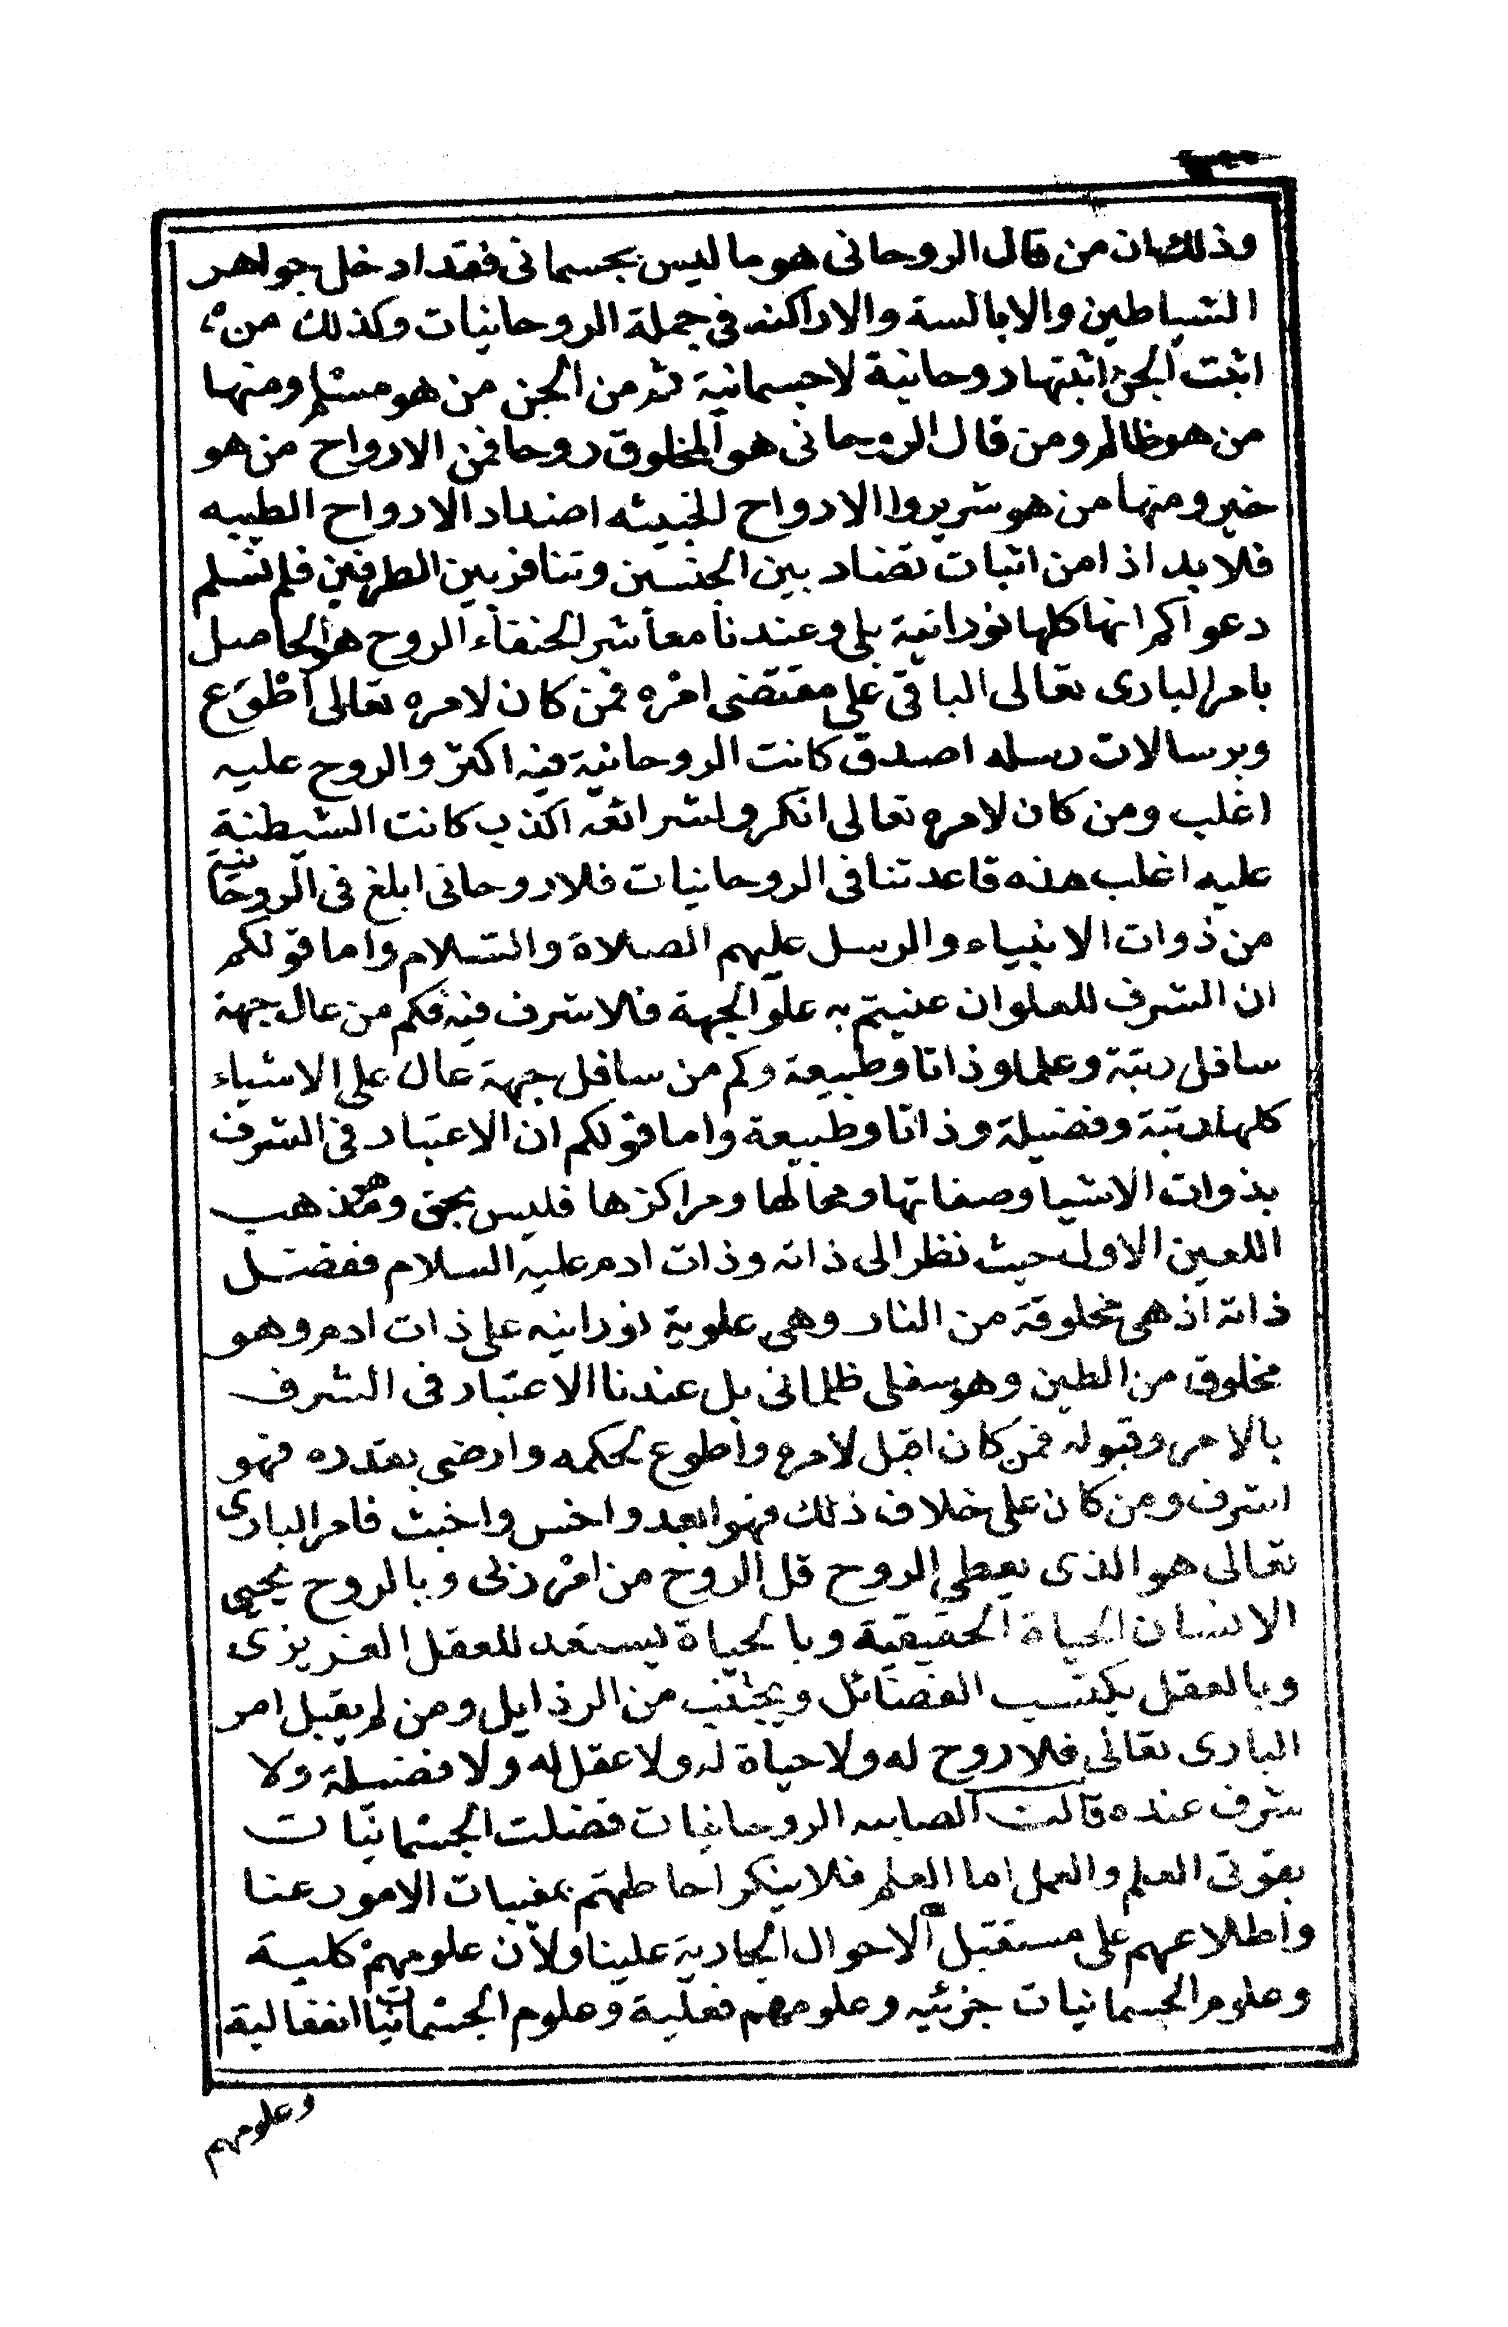 وذلك ان من قال الروحانى هو ما ليس بجسمانى فقد ادخل جواهر
الشياطين والابالسة والاراكنه فى جملة الروحانيات وكذلك من
اثبت الجن اثبتها روحانية لا جسمانية ثم من الجن من هو مسلم ومنها
من هو ظالم ومن قال الروحانى هو المخلوق روحا فمن الارواح من هو
خير ومنها من هو شرير والارواح الخبيثه اضداد الارواح الطيبه
فلا بد اذا من اثبات تضاد بين الجنسين وتنافر بين الطرفين فلم نسلم
دعواكم انها كلها نورانية بلى وعندنا معاشر الحنفاء الروح هو الحاصل
بامر البارى تعالى الباقى على مقتضى امره فمن كان لامره تعالى اطوع
وبرسالات رسله اصدق كانت الروحانية فيه اكثر والروح عليه
اغلب ومن كان لامره تعالى انكر ولشرائعه اكذب كانت الشيطنة
عليه اغلب هذه قاعدتنا فى الروحانيات فلا روحانى ابلغ فى الروحانية
من ذوات الانبياء والرسل عليهم الصلاة والسلام واما قولكم
ان الشرف للعلو ان عنيتم به علو الجهة فلا شرف فيه فكم من عال جهة
سافل رتبة وعلما وذاتا وطبيعة وكم من سافل جهة عال على الاشياء
كلها رتبة وفضيلة وذاتا وطبيعة واما قولكم ان الاعتبار فى الشرف
بذوات الاشيا وصفاتها ومحالها ومراكزها فليس بحق وهو مذهب
اللعين الاول حيث نظر الى ذاته وذات ادم عليه السلام ففضل
ذاته اذ هى مخلوقة من النار وهى علوية نورانيه على ذات ادم وهو
مخلوق من الطين وهو سفلى ظلمانى بل عندنا الاعتبار فى الشرف
بالامر وقبوله فمن كان اقبل لامره واطوع لحكمه وارضى بقدره فهو
اشرف ومن كان على خلاف ذلك فهو ابعد واخس واخبث فامر البارى
تعالى هو الذى يعطى الروح قل الروح من امر ربى وبالروح يحيى
الانسان الحياة الحقيقية وبالحياة يستعد للعقل الغريزى
وبالعقل يكتسب الفضائل ويجتنب من الرذايل ومن لم يقبل امر
البارى تعالى فلا روح له ولا حياة له ولا عقل له ولا فضيلة ولا
شرف عنده قالت الصابيه الروحانيات فضلت الجسمانيات
بقوتى العلم والعمل اما العلم فلا ينكر احاطتهم بمغيبات الامور عنا
واطلاعهم على مستقبل الاحوال الجارية علينا ولان علومهم كلية
وعلوم الجسمانيات جزئيه وعلومهم فعلية وعلوم الجسمانيات انفعالية
وعلومهم